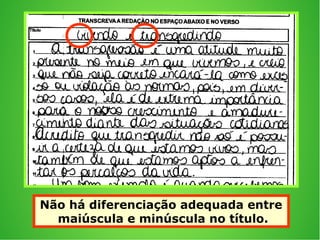 TRANSCREVA A REDAÇÃO NO ESPAÇO ABAIXO E NO VERSO
Título
vivendo e transgredindo
A transgressão é uma atitude muito
presente no meio em que vivemos, e creio
que não seja correto encará-la como exces
so ou violação às normas, pois, em diver-
sos casos, ela é de extrema importância
para o nosso crescimento e amadure-
cimento diante das situações cotidianas
Acredito que transgredir não só é possu-
ir a certeza de que estamos vivos, mas
também de que estamos aptos a enfren-
tar os percalços da vida.
Um bom exemplo é quando recebemos
Não há diferenciação adequada entre
maiúscula e minúscula no título.